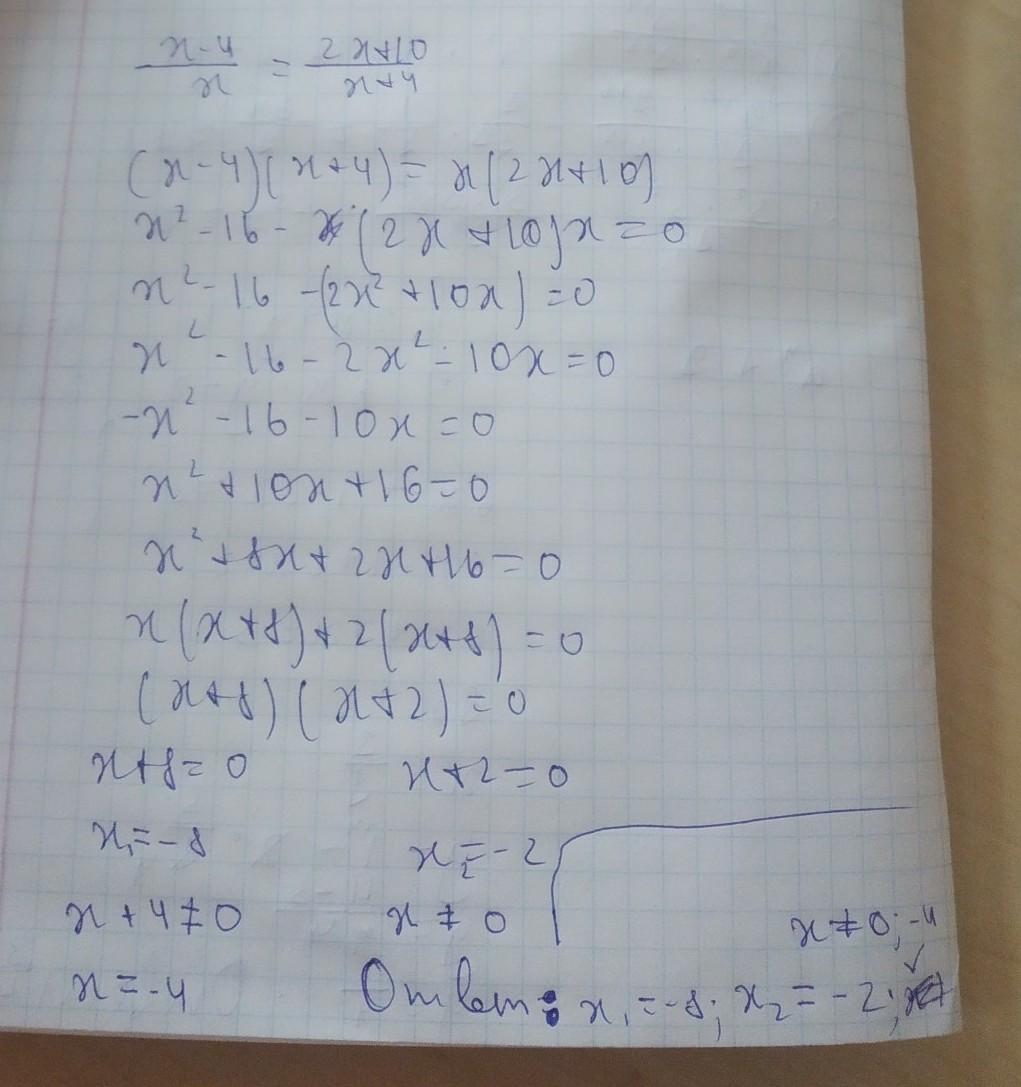 x-4/x = 2x+10/x+4
(x-4)(x+4)= x(2x+10)
x²-16-(2x+10)x=0
x²-16-(2x²+10x)=0
x²-16-2x²-10x=0
-x²-16-10x=0
x²+10x+16=0
x²+8x+2x+16=0
x(x+8)+2(x+8)=0
(x+8)(x+2)=0
x+8=0 x+2=0
x₁=-8 x₂=-2
x+4≠0 x≠0 x≠0;-4
x=-4 Ответ: x₁=-8; x₂=-2;